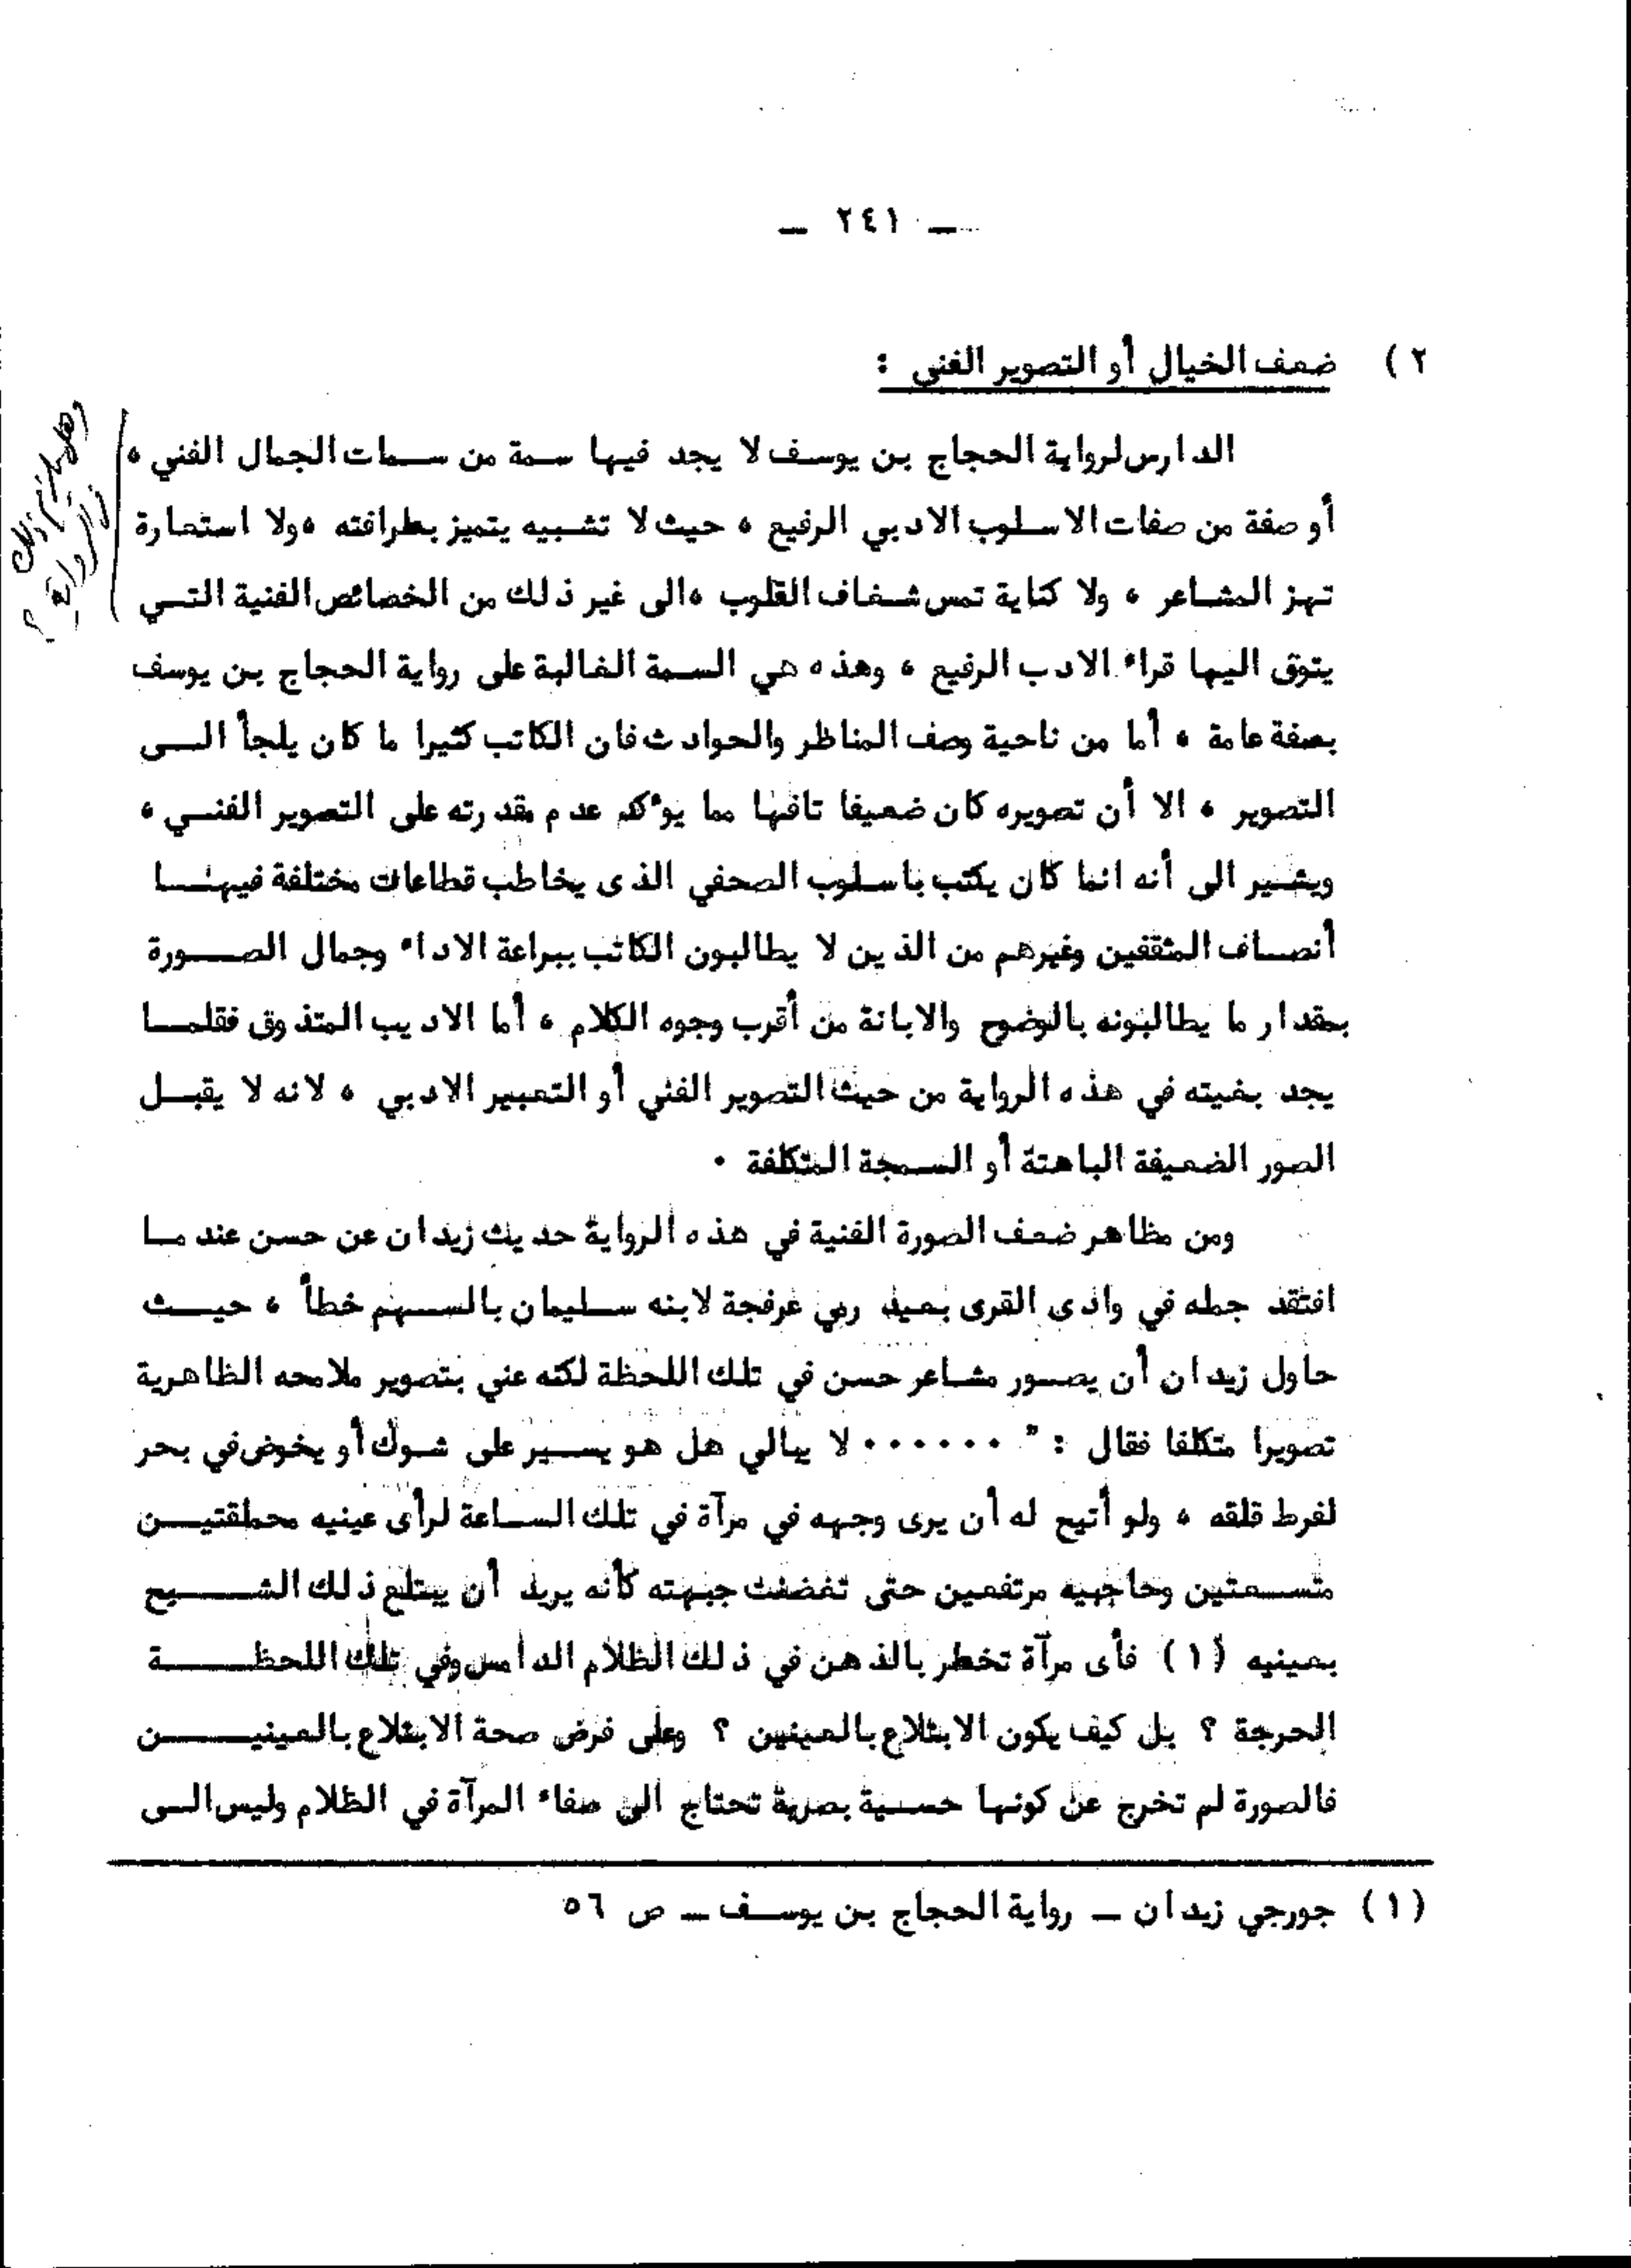 — ٢٤١ —
٢ ) ضعف الخيال أو التصوير الفني :
الدارس لرواية الحجاج بن يوسف لا يجد فيها سمة من سمات الجمال الفني ،
أو صفة من صفات الاسلوب الادبي الرفيع ، حيث لا تشبيه يتميز بطرافته ، ولا استعارة
تهز المشاعر ، ولا كناية تمس شغاف القلوب ، الى غير ذلك من الخصائص الفنية التي
يتوق اليها قراء الادب الرفيع ، وهذه هي السمة الغالبة على رواية الحجاج بن يوسف
بصفة عامة ، أما من ناحية وصف المناظر والحوادث فان الكاتب كثيرا ما كان يلجأ الى
التصوير ، الا أن تصويره كان ضعيفا تافها مما يؤكد عدم مقدرته على التصوير الفني ،
ويشير الى أنه انما كان يكتب باسلوب الصحفي الذى يخاطب قطاعات مختلفة فيها
أنصاف المثقفين وغيرهم من الذين لا يطالبون الكاتب ببراعة الاداء وجمال الصورة
بمقدار ما يطالبونه بالوضوح والابانة من أقرب وجوه الكلام ، أما الاديب المتذوق فقلما
يجد بغيته في هذه الرواية من حيث التصوير الفني أو التعبير الادبي ، لانه لا يقبل
الصور الضعيفة الباهتة أو السمجة المتكلفة .
ومن مظاهر ضعف الصورة الفنية في هذه الرواية حديث زيدان عن حسن عندما
افتقد جمله في وادى القرى بعيد رمي عرفجة لابنه سليمان بالسهم خطأ ، حيث
حاول زيدان أن يصور مشاعر حسن في تلك اللحظة لكنه عني بتصوير ملامحه الظاهرية
تصويرا متكلفا فقال : " ...... لا يبالي هل هو يسير على شوك أو يخوض في بحر
لفرط قلقه ، ولو أتيح له أن يرى وجهه في مرآة في تلك الساعة لرأى عينيه محملقتين
متسعتين وحاجبيه مرتفعين حتى تغضنت جبهته كأنه يريد أن يبتلع ذلك الشبح
بعينيه (١) فأى مرآة تخطر بالذهن في ذلك الظلام الدامس وفي تلك اللحظة
الحرجة ؟ بل كيف يكون الابتلاع بالعينين ؟ وعلى فرض صحة الابتلاع بالعينين
فالصورة لم تخرج عن كونها حسية بصرية تحتاج الى صفاء المرآة في الظلام وليس الى
(١) جورجي زيدان — رواية الحجاج بن يوسف — ص ٥٦
وهل يلزم ذلك
في الرواية ؟